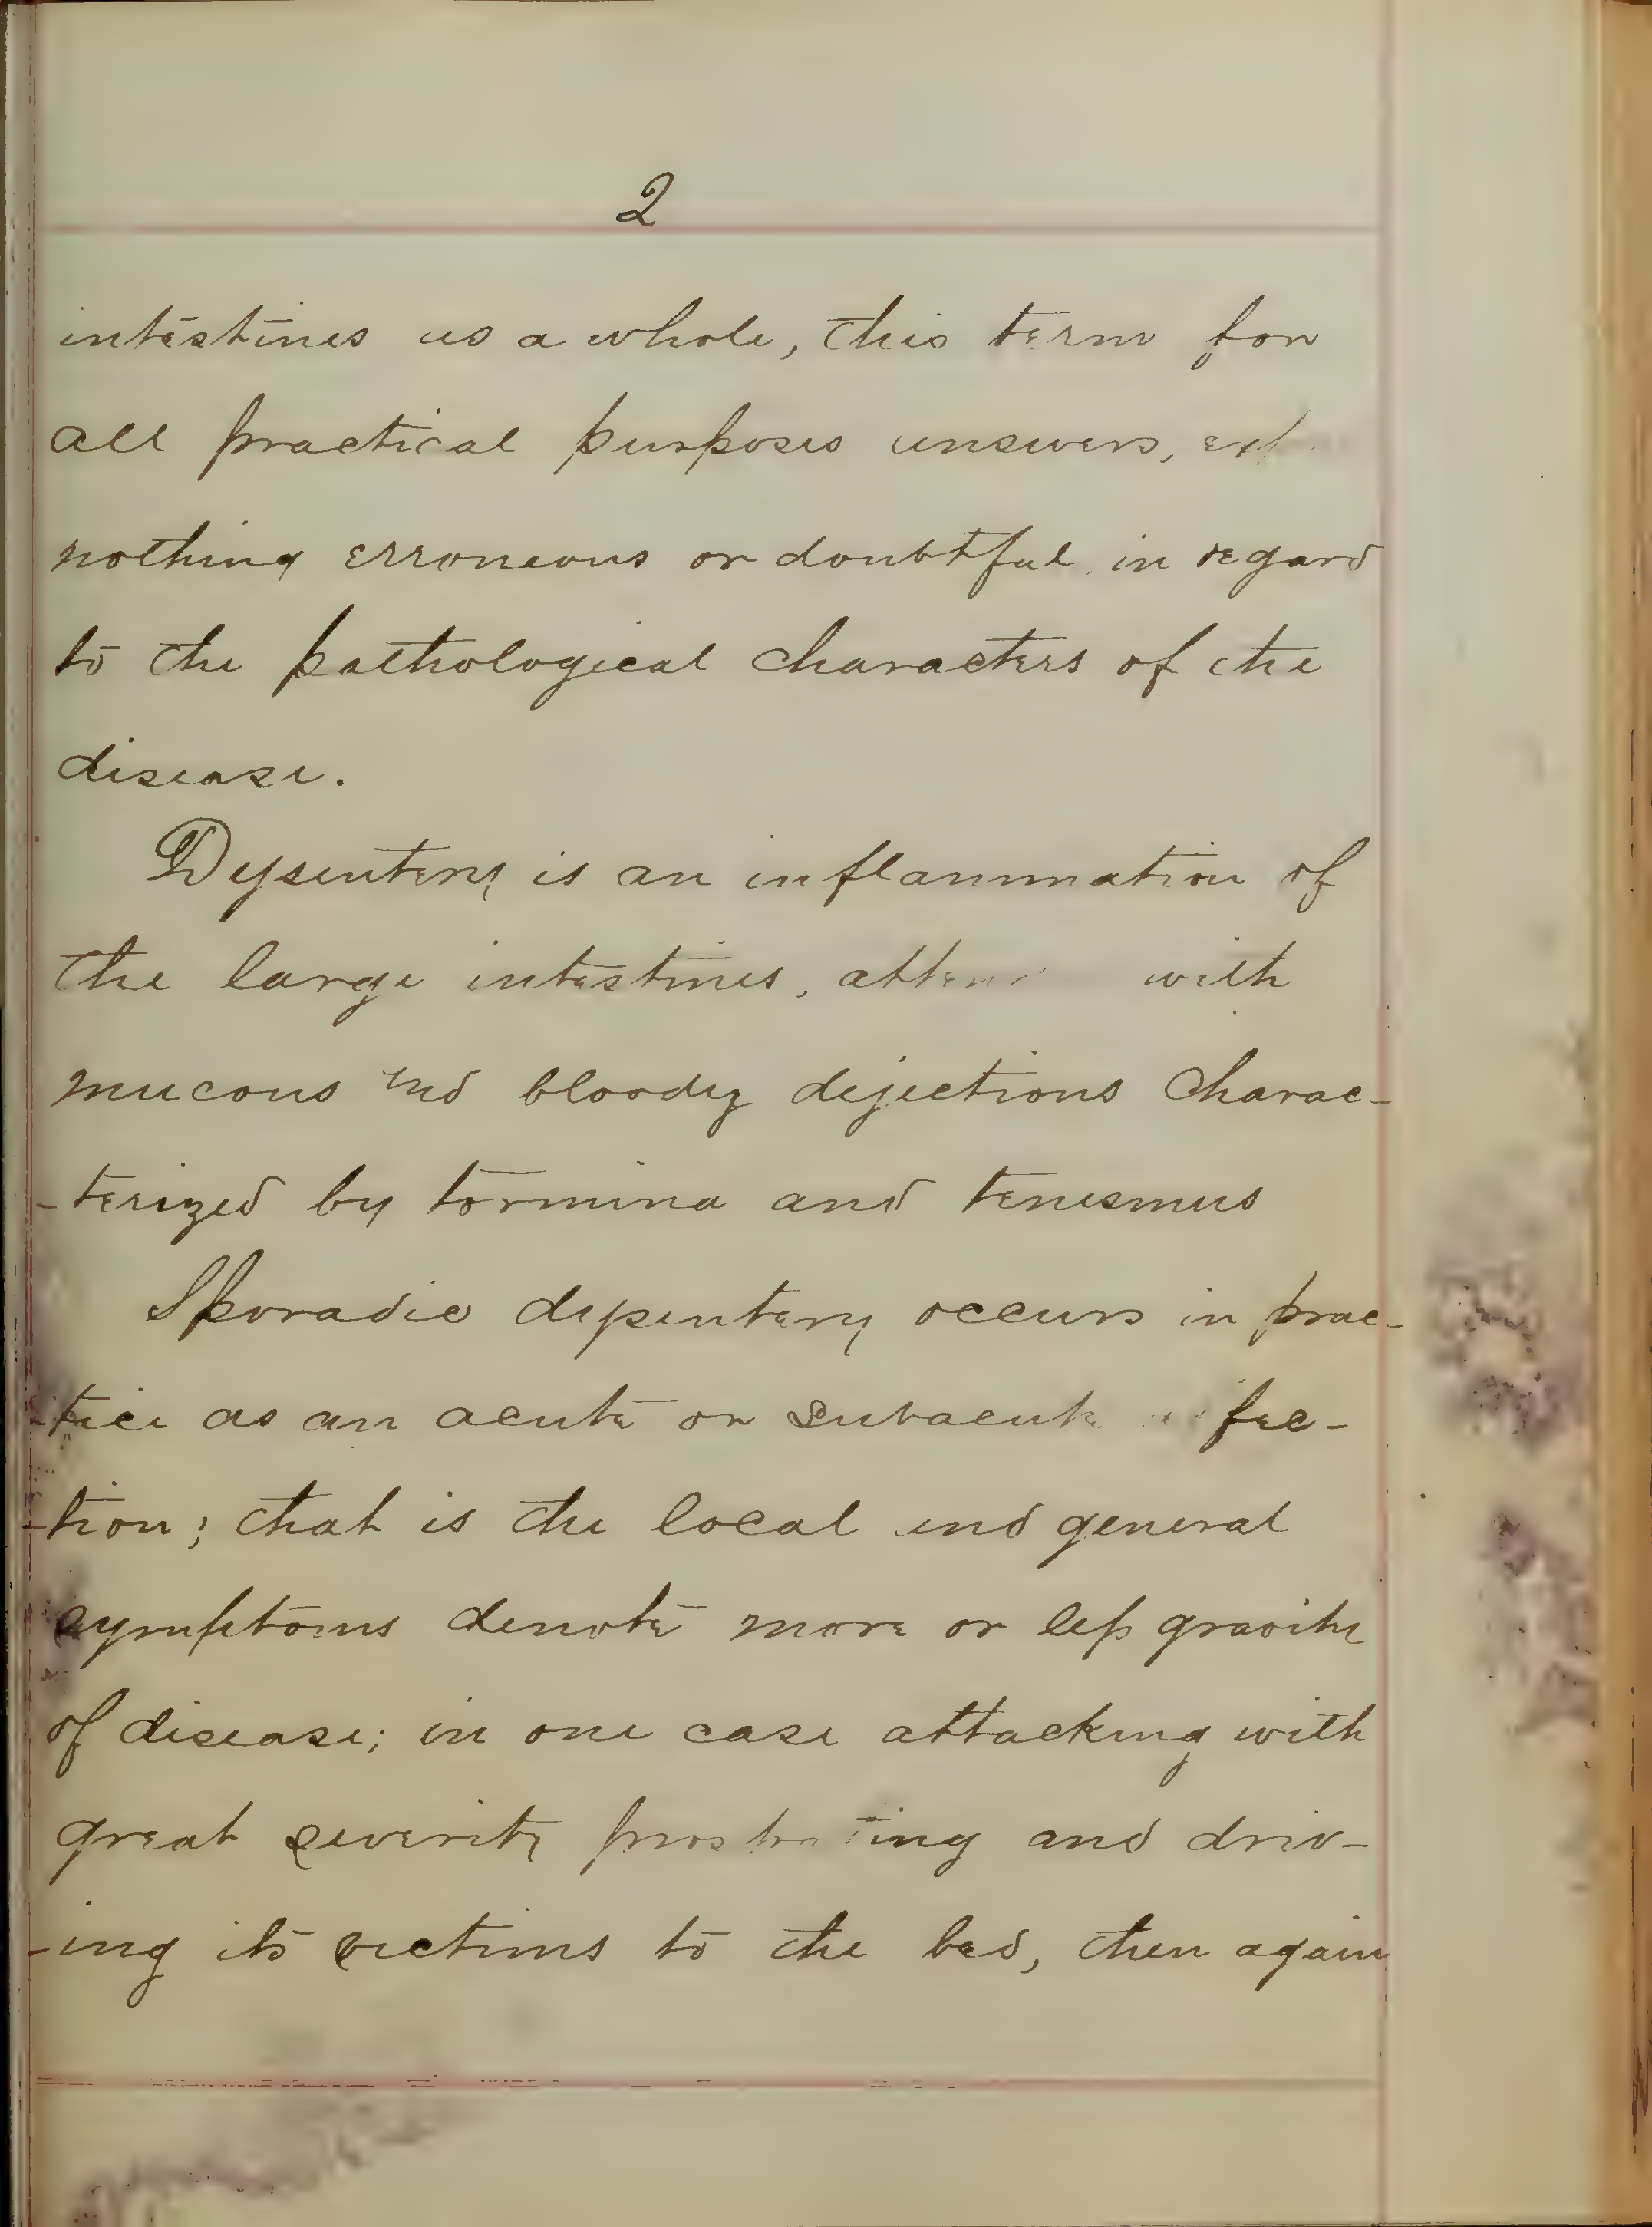 2
intestines as a whole, this term for
all practical purposes answers,
nothing erroneous or doubtful in regard
to the pathological characters of the
disease.
Dysentery is an inflammation of
the large intestines, with
mucous and bloody dejections charac-
-terized by tormina and tenesmus
Sporadic dysentery occurs in prac-
-tice as an acute or subacute affec-
-tion; that is the local and general
symptoms denote more or less gravity
of disease; in one case attacking with
great severity prostrating and driv-
-ing its victims to the bed, then again